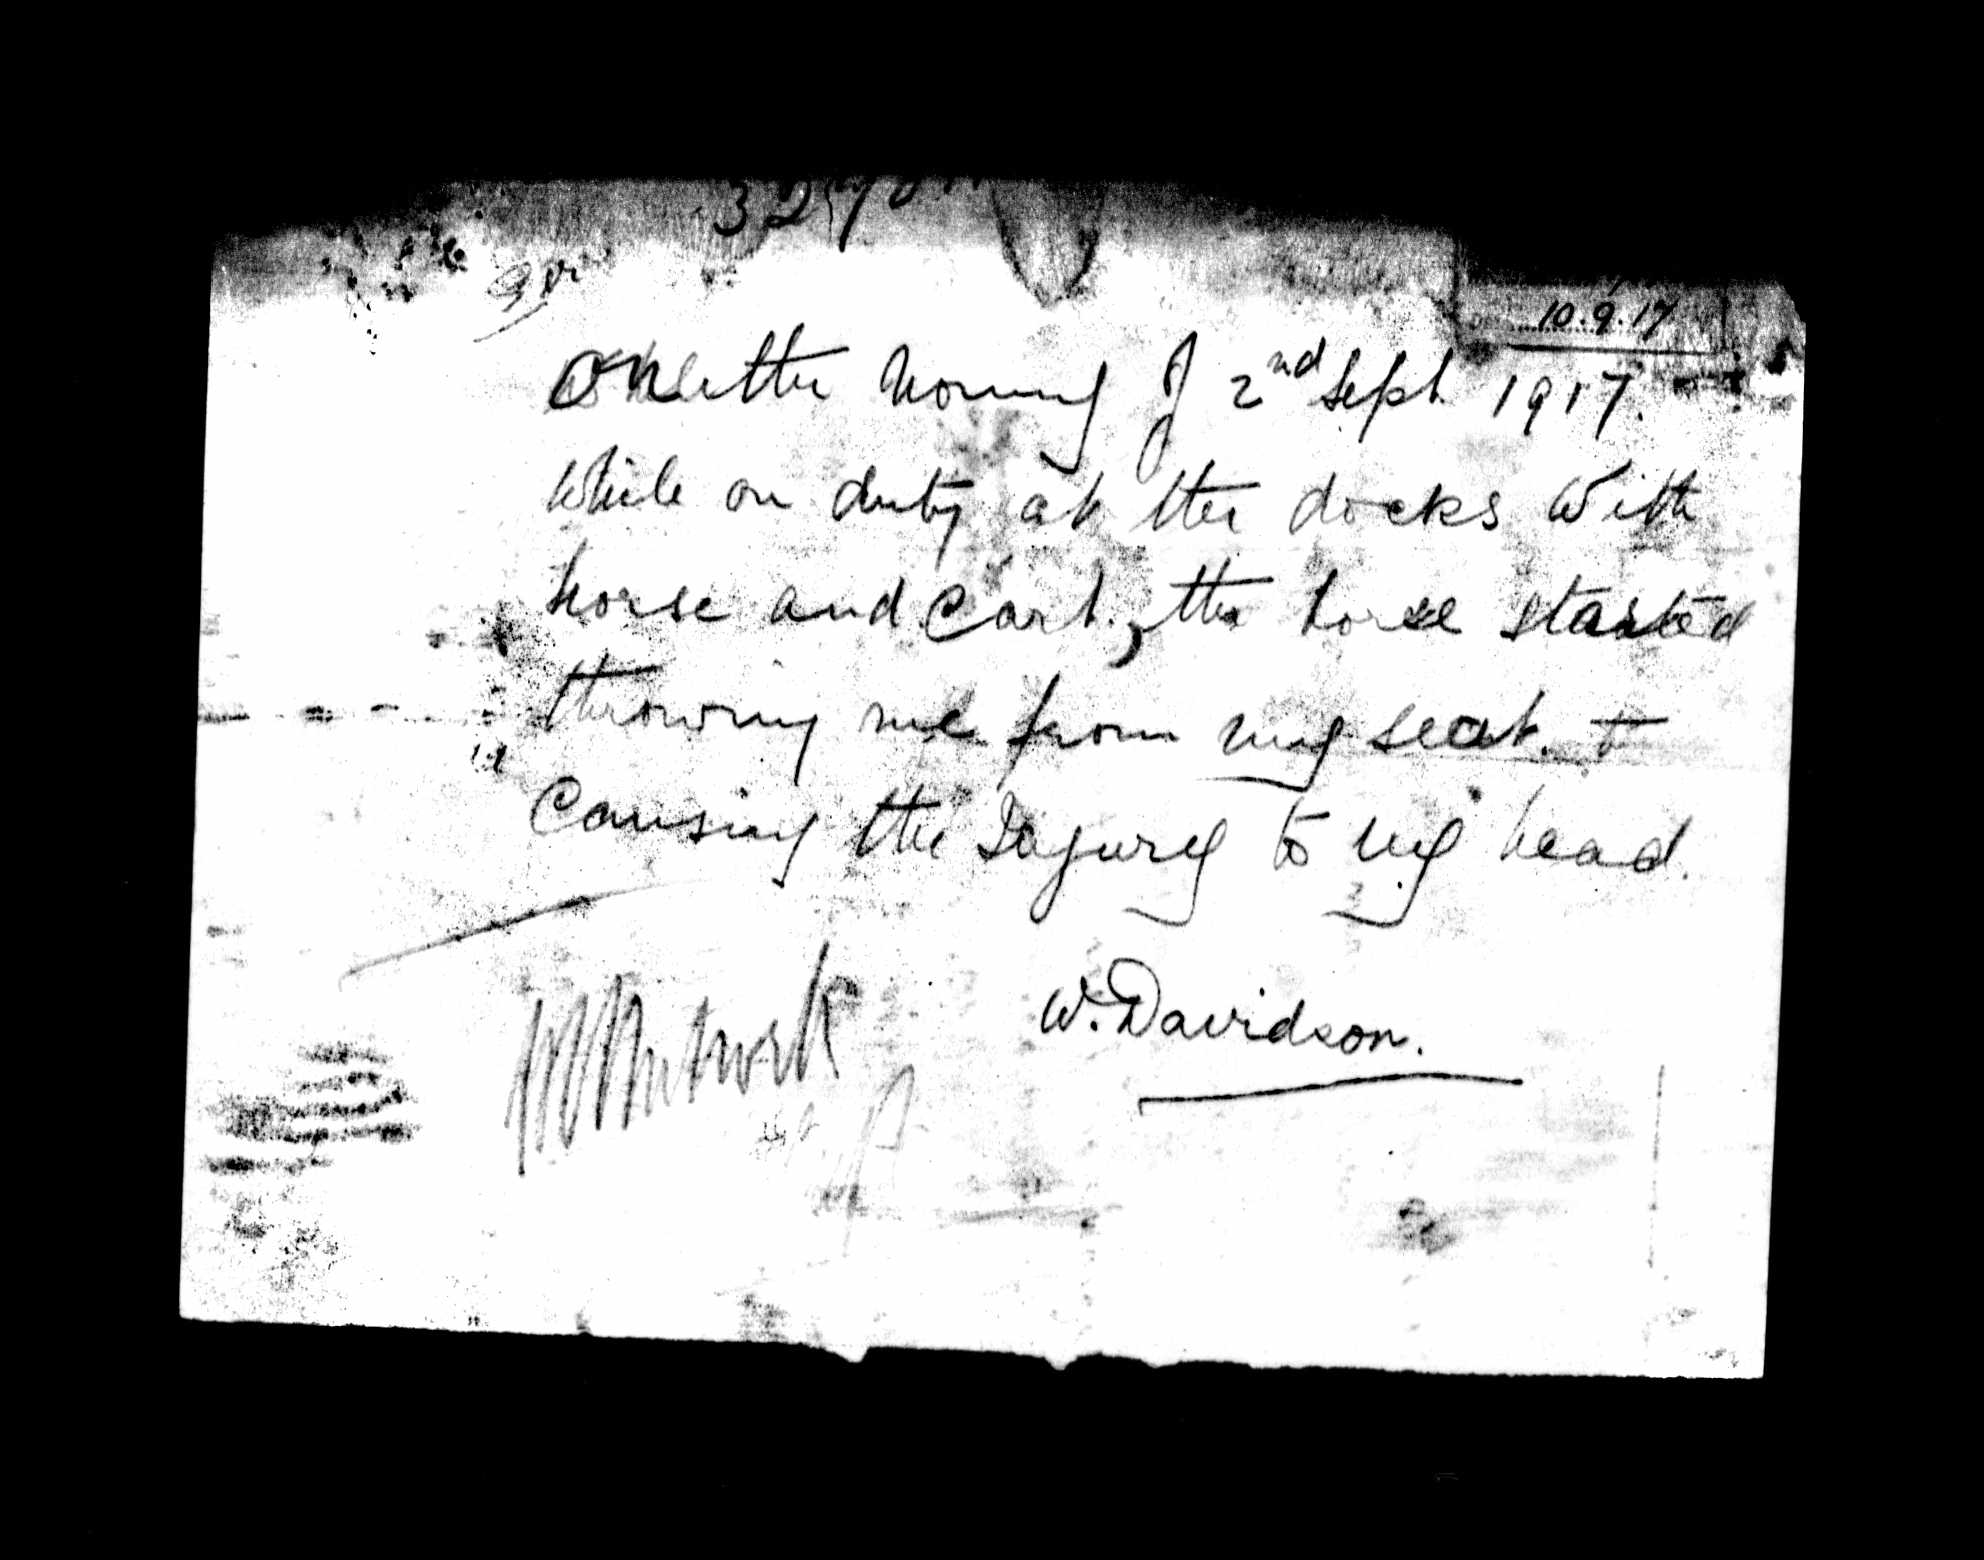 10.9.17
On the Morning of 2nd Sept. 1917.
While on duty at the docks With
horse and Cart, the horse started
throwing me from my seat. &
Causing the Injury to my head.
W. Davidson.